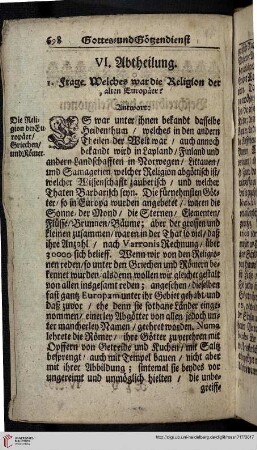 698 Gottes und Götzendienst
VI. Abtheilung.
1. Frage. Welches war die Religion der
alten Europäer?
Antwort:
Die Reli-
gion der Eu-
ropäer/
Griechen/
und Römer.
ES war unter ihnen bekandt dasselbe
Heidenthum / welches in den andern
Theilen der Welt war / auch annoch
bekandt wird in Lapland / Finland und
andere Landschafften in Norwegen / Littauen /
und Samageten welcher Religion abgötisch ist/
welcher Wissenschafft zauberisch / und welcher
Thaten Barbarisch seyn. Die fürnehmsten Göt-
ter / so in Europa wurden angebetet / waren die
Sonne / der Mond / die Sternen / Elementen/
Flüsse / Brunnen / Bäume; aber der grossen und
kleinen zusammen / waren in der That so viel / daß
ihre Anzohl / nach Varronis Rechnung / über
30000 sich belieff. Wenn wir von den Religio-
nen reden / so unter den Griechen und Römern be-
kennet wurden / alsdenn wollen wir gleicher gestalt
von allen insgesamt reden; angesehen / dieselben
fast gantz Europam unter ihr Gebiet gehabt / und
daß zwar / ehe denn sie solche Länder einge-
nommen / einerley Abgötter von allen / jedoch un-
ter mancherley Namen / geehret worden. Numa
lehrete die Römer / ihre Götter zu verehren mit
Opffern von Getreide und Kuchen / mit Saltz
besprengt / auch mit Tempel bauen / nicht aber
mit ihrer Abbildung; sintemal sie beydes vor
ungereimt und unmöglich hielten / die unbe-
greiffe